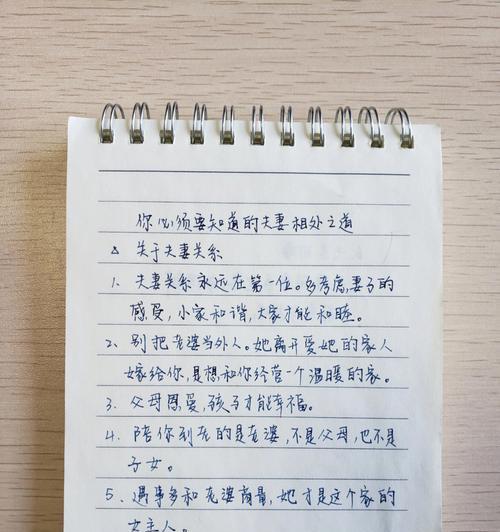 你必须要知道的夫妻相处之道
△ 关于夫妻关系
1. 夫妻关系永远在第一位。多考虑,妻子的
感受,小家和谐,大家才能和睦。
2. 别把老婆当外人。她离开爱她的家人
嫁给你,是想和你经营一个温暖的家。
3. 父母恩爱,孩子才能幸福。
4. 陪你到老的是老婆,不是父母,也不是
子女。
5. 遇事多和老婆商量,她才是这个家的
女主人。